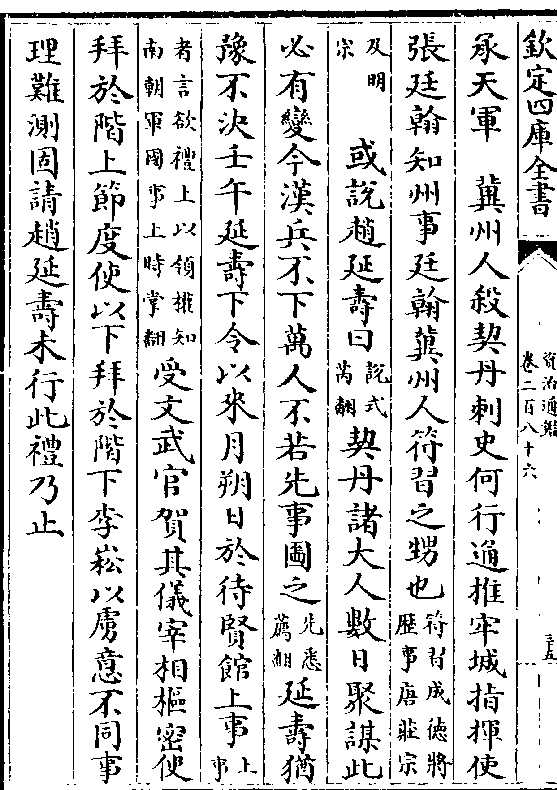 欽定四庫全書
資治通鑑
卷二百八十六
三十五
承天軍　冀州人殺契丹刺史何行通推牢城指揮使
張廷翰知州事廷翰冀州人符習之甥也符習成德將歷事唐莊宗
及明宗　或說趙延壽曰說式芮翻契丹諸大人數日聚謀此
必有變今漢兵不下萬人不若先事圖之先悉薦翻延壽猶
豫不決壬午延壽下令以來月朔日於待賢館上事上事
者言欲禮上以領權知南朝軍國事上時掌翻受文武官賀其儀宰相樞密使
拜於階上節度使以下拜於階下李崧以虜意不同事
理難測固請趙延壽未行此禮乃止